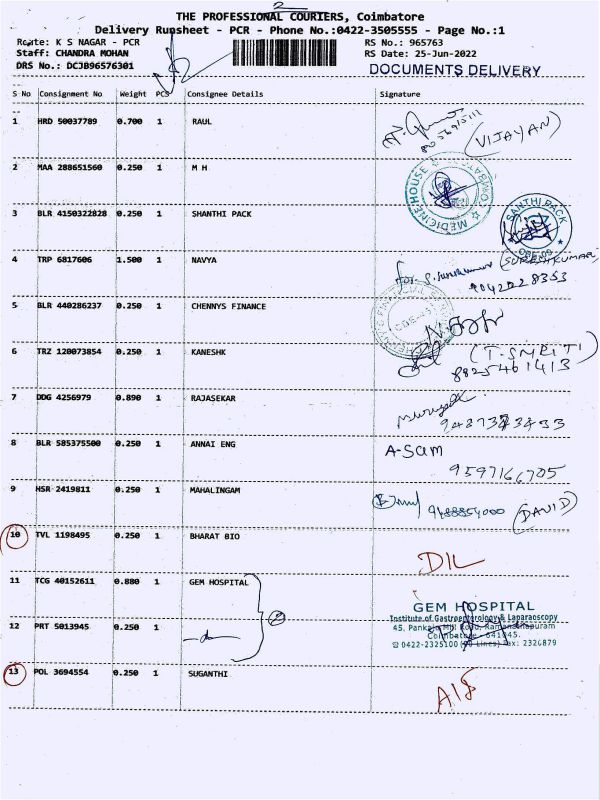 2
THE PROFESSIONAL COURIERS, Coimbatore
Delivery Runsheet - PCR - Phone No.:0422-3505555 - Page No.:1
Route: K S NAGAR - PCR
RS No.: 965763
Staff: CHANDRA MOHAN
RS Date: 25-Jun-2022
DRS No.: DCJB96576301
DOCUMENTS DELIVERY
S No Consignment No Weight PCS Consignee Details Signature
1 HRD 50037789 0.700 1 RAUL
(VIJAYAN)
2 MAA 288651560 0.250 1 M H
MEDICINE HOUSE
3 BLR 4150322828 0.250 1 SHANTHI PACK
SANTHI PACK
4 TRP 6817606 1.500 1 NAVYA
for (SURESHKUMAR)
9042228353
5 BLR 440286237 0.250 1 CHENNYS FINANCE
6 TRZ 120073854 0.250 1 KANESHK
(T. SMRITI)
8825461413
7 DDG 4256979 0.890 1 RAJASEKAR
8 BLR 585375500 0.250 1 ANNAI ENG
A-Sam
9597166705
9 HSR 2419811 0.250 1 MAHALINGAM
9488854000 (DAVID)
10 TVL 1198495 0.250 1 BHARAT BIO
D/L
11 TCG 40152611 0.880 1 GEM HOSPITAL
2
GEM HOSPITAL
Institute of Gastroenterology & Laparoscopy
45, Pankaja Mill Road, Ramanathapuram
Coimbatore - 641045.
12 PRT 5013945 0.250 1 -do-
0422-2325100 Fax: 2320879
13 POL 3694554 0.250 1 SUGANTHI